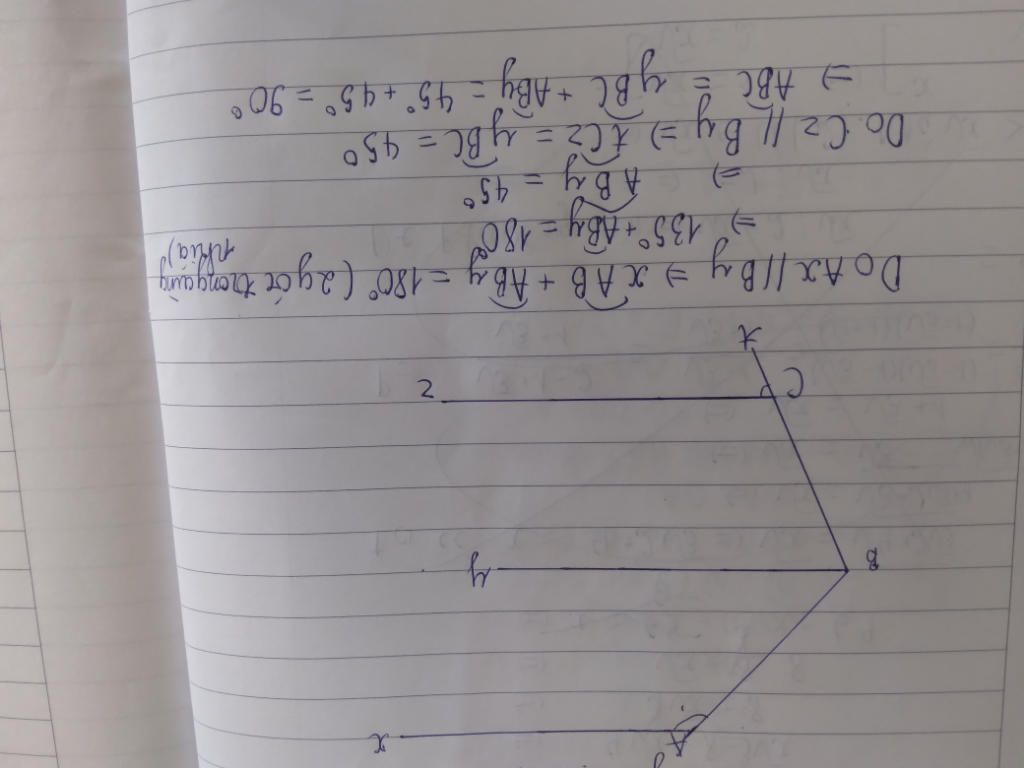 A x
B y
C z
t
Do Ax // By ⇒ xAB + ABy = 180° (2 góc trong cùng
phía)
⇒ 135° + ABy = 180°
⇒ ABy = 45°
Do Cz // By ⇒ tCz = yBC = 45°
⇒ ABC = yBC + ABy = 45° + 45° = 90°